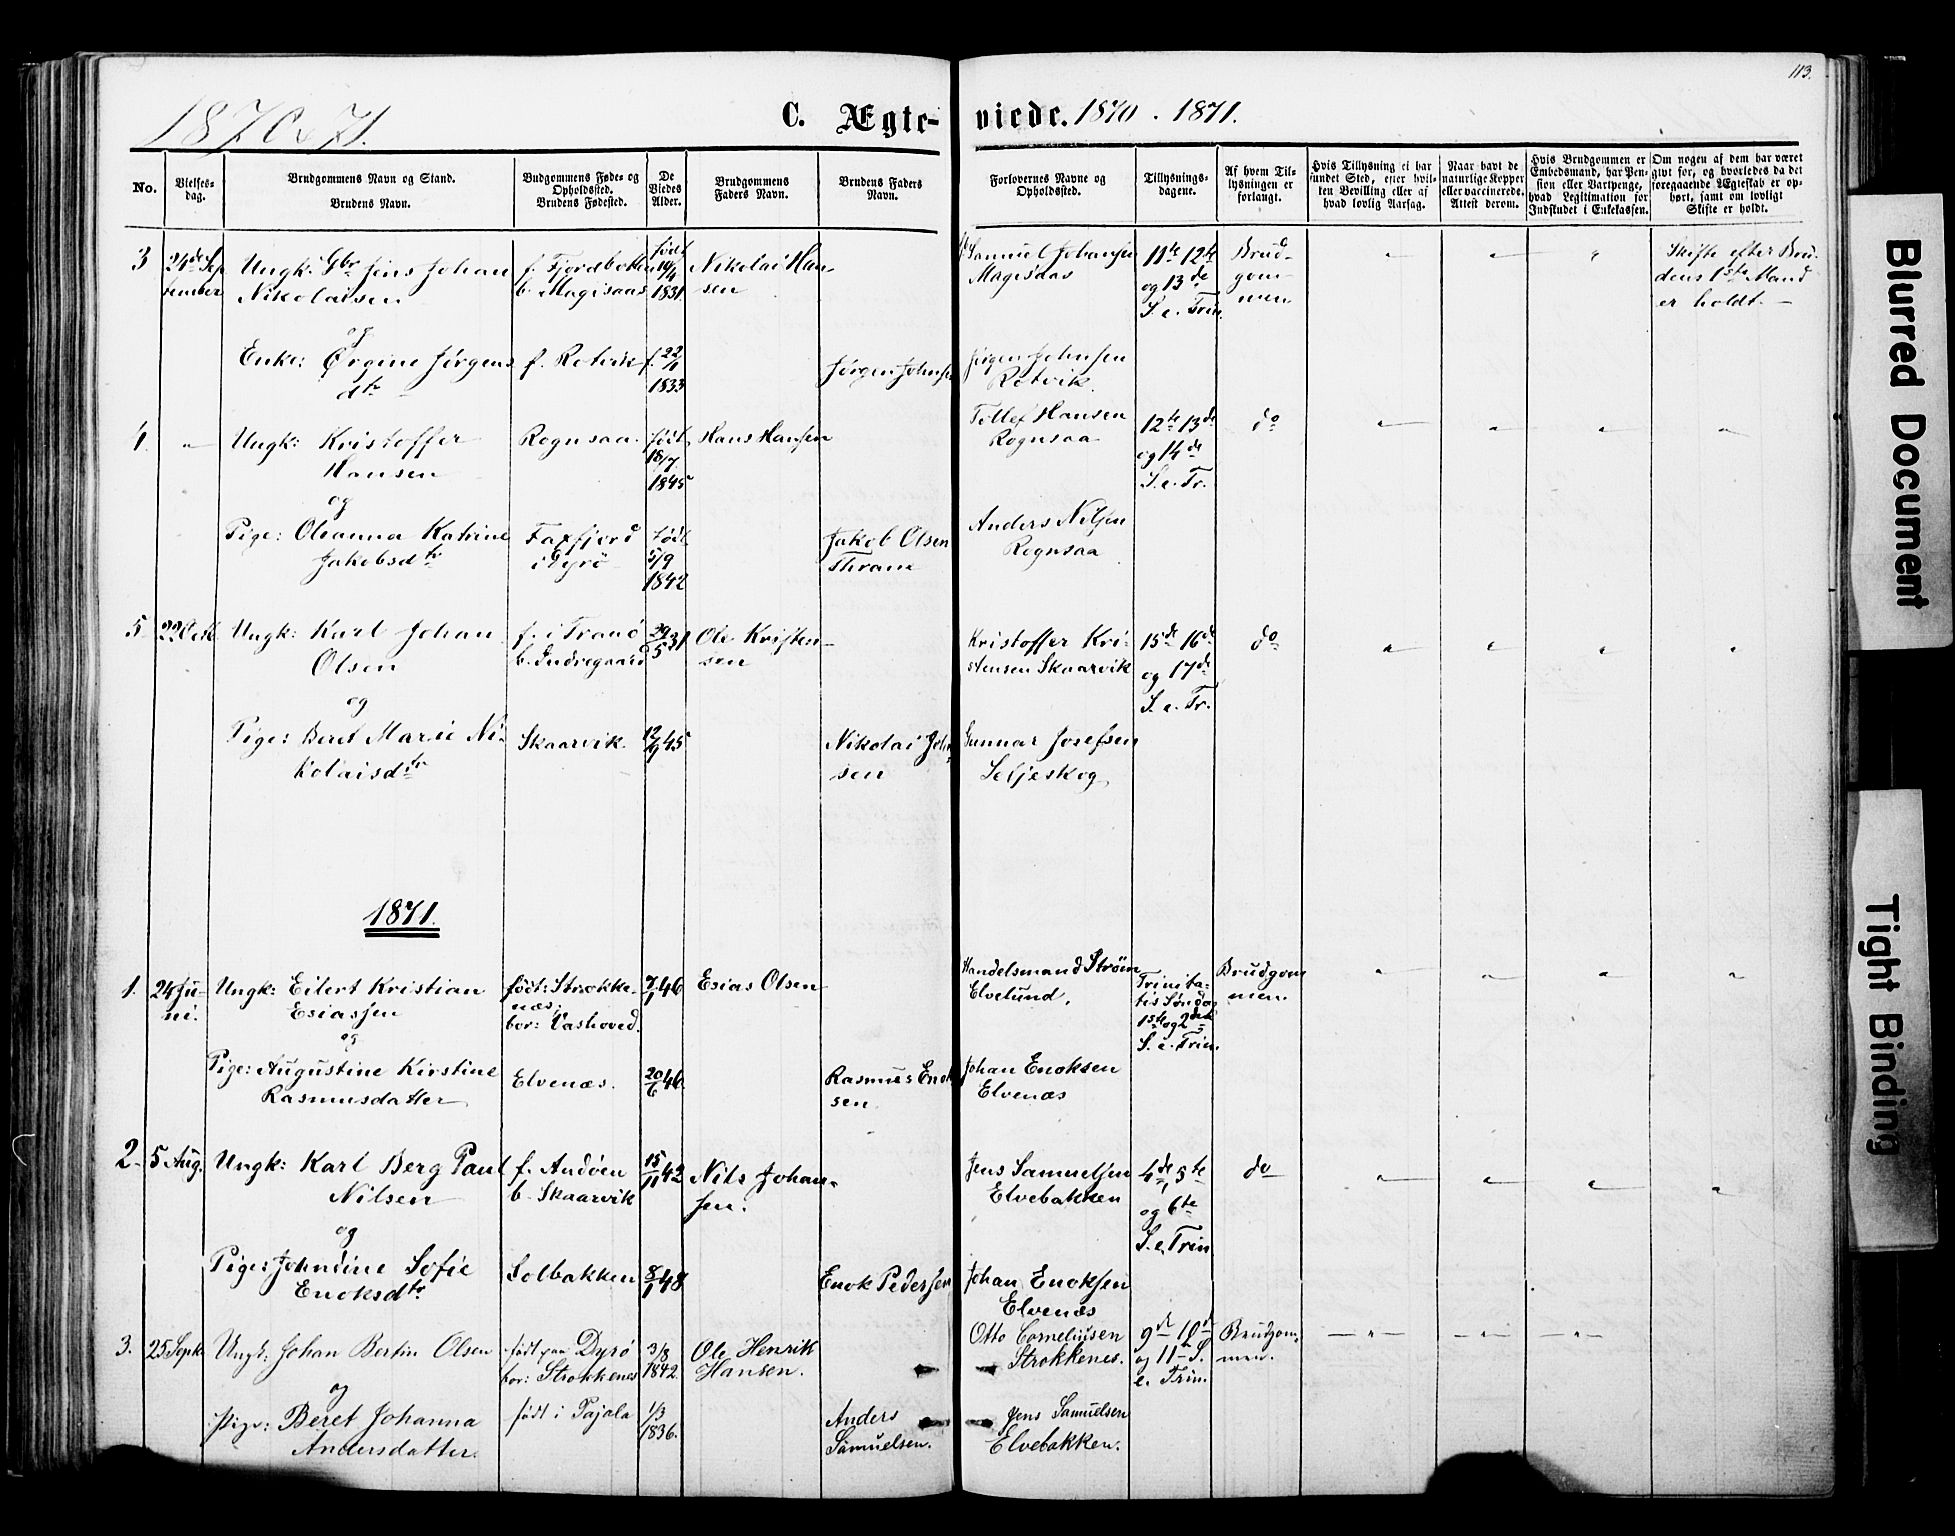 113.
1870 & 71.
C. Ægte-
viede. 1870 - 1871.
No.
Vielses-
dag.
Brudgommens Navn og Stand.
Brudens Navn.
Budgommens Føde- og
Opholdssted.
Brudens Fødested.
De
Viedes
Alder.
Brudgommens
Faders Navn.
Brudens Faders
Navn.
Forlovernes Navne og
Opholdssted.
Tillysnings-
dagene.
Af hvem Til-
lysningen er
forlangt.
Hvis Tillysning ei har
fundet Sted, efter hvil-
ken Bevilling eller af
hvad lovlig Aarsag.
Naar havt de
naturlige Kopper
eller vaccinerede.
Attest derom.
Hvis Brudgommen er
Embedsmand, har Pen-
sion eller Vartpenge,
hvad Legitimation for
Indskudet i Enkekassen.
Om nogen af dem har været
givt før, og hvorledes da det
foregaaende Ægteskab er op-
hørt, samt om lovligt
Skifte er holdt.
3
24de Sep
tember
Ungk: Gbr Jens Johan
Nikolaisen
og
Enke: Ørgine Jørgens
dtr
f. Fjordbotten
b. Magisaas
f. Rotvik
født
19/4
1831.
f. 22/1
1833
Nikolai Han-
sen
Jørgen Johnsen
Samuel Johansen
Magisaas
Jørgen Johnsen
Rotvik
11te 12te
og 13de
S. e. Trin.
Brud-
gom-
men
" " "
Skifte efter Bru-
dens 1ste Mand
er holdt. -
4.
"
Ungk: Kristoffer
Hansen
og
Pige: Oleanna Katrine
Jakobsdtr
Rognsaa.
Faxfjord
i Dyrö
født
18/7
1845
født
5/9
1842
Hans Hansen
Jakob Olsen
Thrane
Tollef Hansen
Rognsaa
Anders Nilsen
Rognsaa
12te 13de
og 14de
S. e. Tr.
do
" " " "
5
22 Octb
Ungk: Karl Johan
Olsen
og
Pige: Beret Marie Ni-
kolaisdtr
f. i Tranö
b. Indregaard
Skaarvik.
29/5 31
12/9 45
Ole Kristen-
sen
Nikolai John-
sen
Kristoffer Kri-
stensen Skaarvik
Gunnar Josefsen
Seljeskog
15de 16de
og 17de
S. e. Tr.
do
" " " "
1871.
1.
24 Ju-
ni.
Ungk: Eilert Kristian
Esiassen
og
Pige: Augustine Kirstine
Rasmusdatter
født: Strokke-
næs;
bor: Vashoved.
Elvenæs.
7/1 46
20/6 46.
Esias Olsen
Rasmus Enok
sen
Handelsmand Ström
Elvelund.
Johan Enoksen
Elvenæs
Trinita-
tis Söndag
1ste og 2den
S. e. Trin.
Brudgom
men.
" " " "
2.
5 Aug.
Ungk: Karl Berg Paul
Nilsen
og
Pige: Johndine Sofie
Enoksdtr
f. Andöen
b. Skaarvik
Solbakken
15/11 42
8/1 48
Nils Johan-
sen.
Enok Pedersen
Jens Samuelsen
Elvebakken
Johan Enoksen
Elvenæs
4de, 5te
og 6te
S. e. Trin
do
" " " "
3.
25 Septb
Ungk: Johan Bertin Olsen
og
Pige: Beret Johanna
Andersdatter.
født paa Dyrö
bor: Strokkenes
født i Pajala
3/8
1842.
1/3
1836.
Ole Henrik
Hansen.
Anders
Samuelsen.
Otto Corneliusen
Strokkenes.
Jens Samuelsen
Elvebakken.
9d 10d
og 11te S.
e. Trin.
Brudgom-
men.
— " — — " — — " —
Blurred Document
Tight Binding